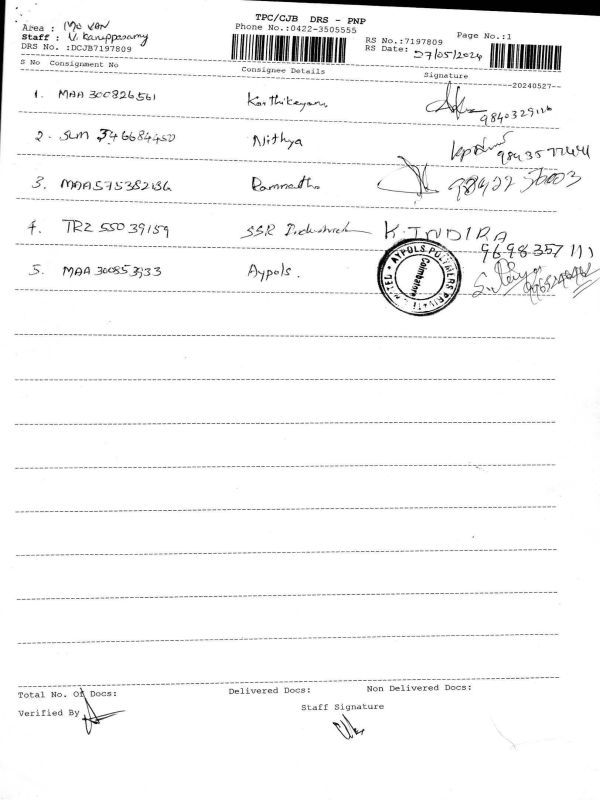 TPC/CJB DRS - PNP
Phone No.:0422-3505555
Area : Mc VAN
Staff : V. Karuppasamy
DRS No. :DCJB7197809
RS No.:7197809
Page No.:1
RS Date: 27/05/2024
S No Consignment No Consignee Details Signature
--20240527--
1. MAA 300826561 Karthikeyan 9840329126
2. 346684450 Nithya
3. MAA575382136 Ramnath 98422 56003
4. TRZ 55039159 SSR K.INDIRA
9698357111
5. MAA 300853933 Aypols.
AYPOLS POLYMERS PRIVATE LIMITED
Coimbatore
Total No. Of Docs: Delivered Docs: Non Delivered Docs:
Verified By Staff Signature